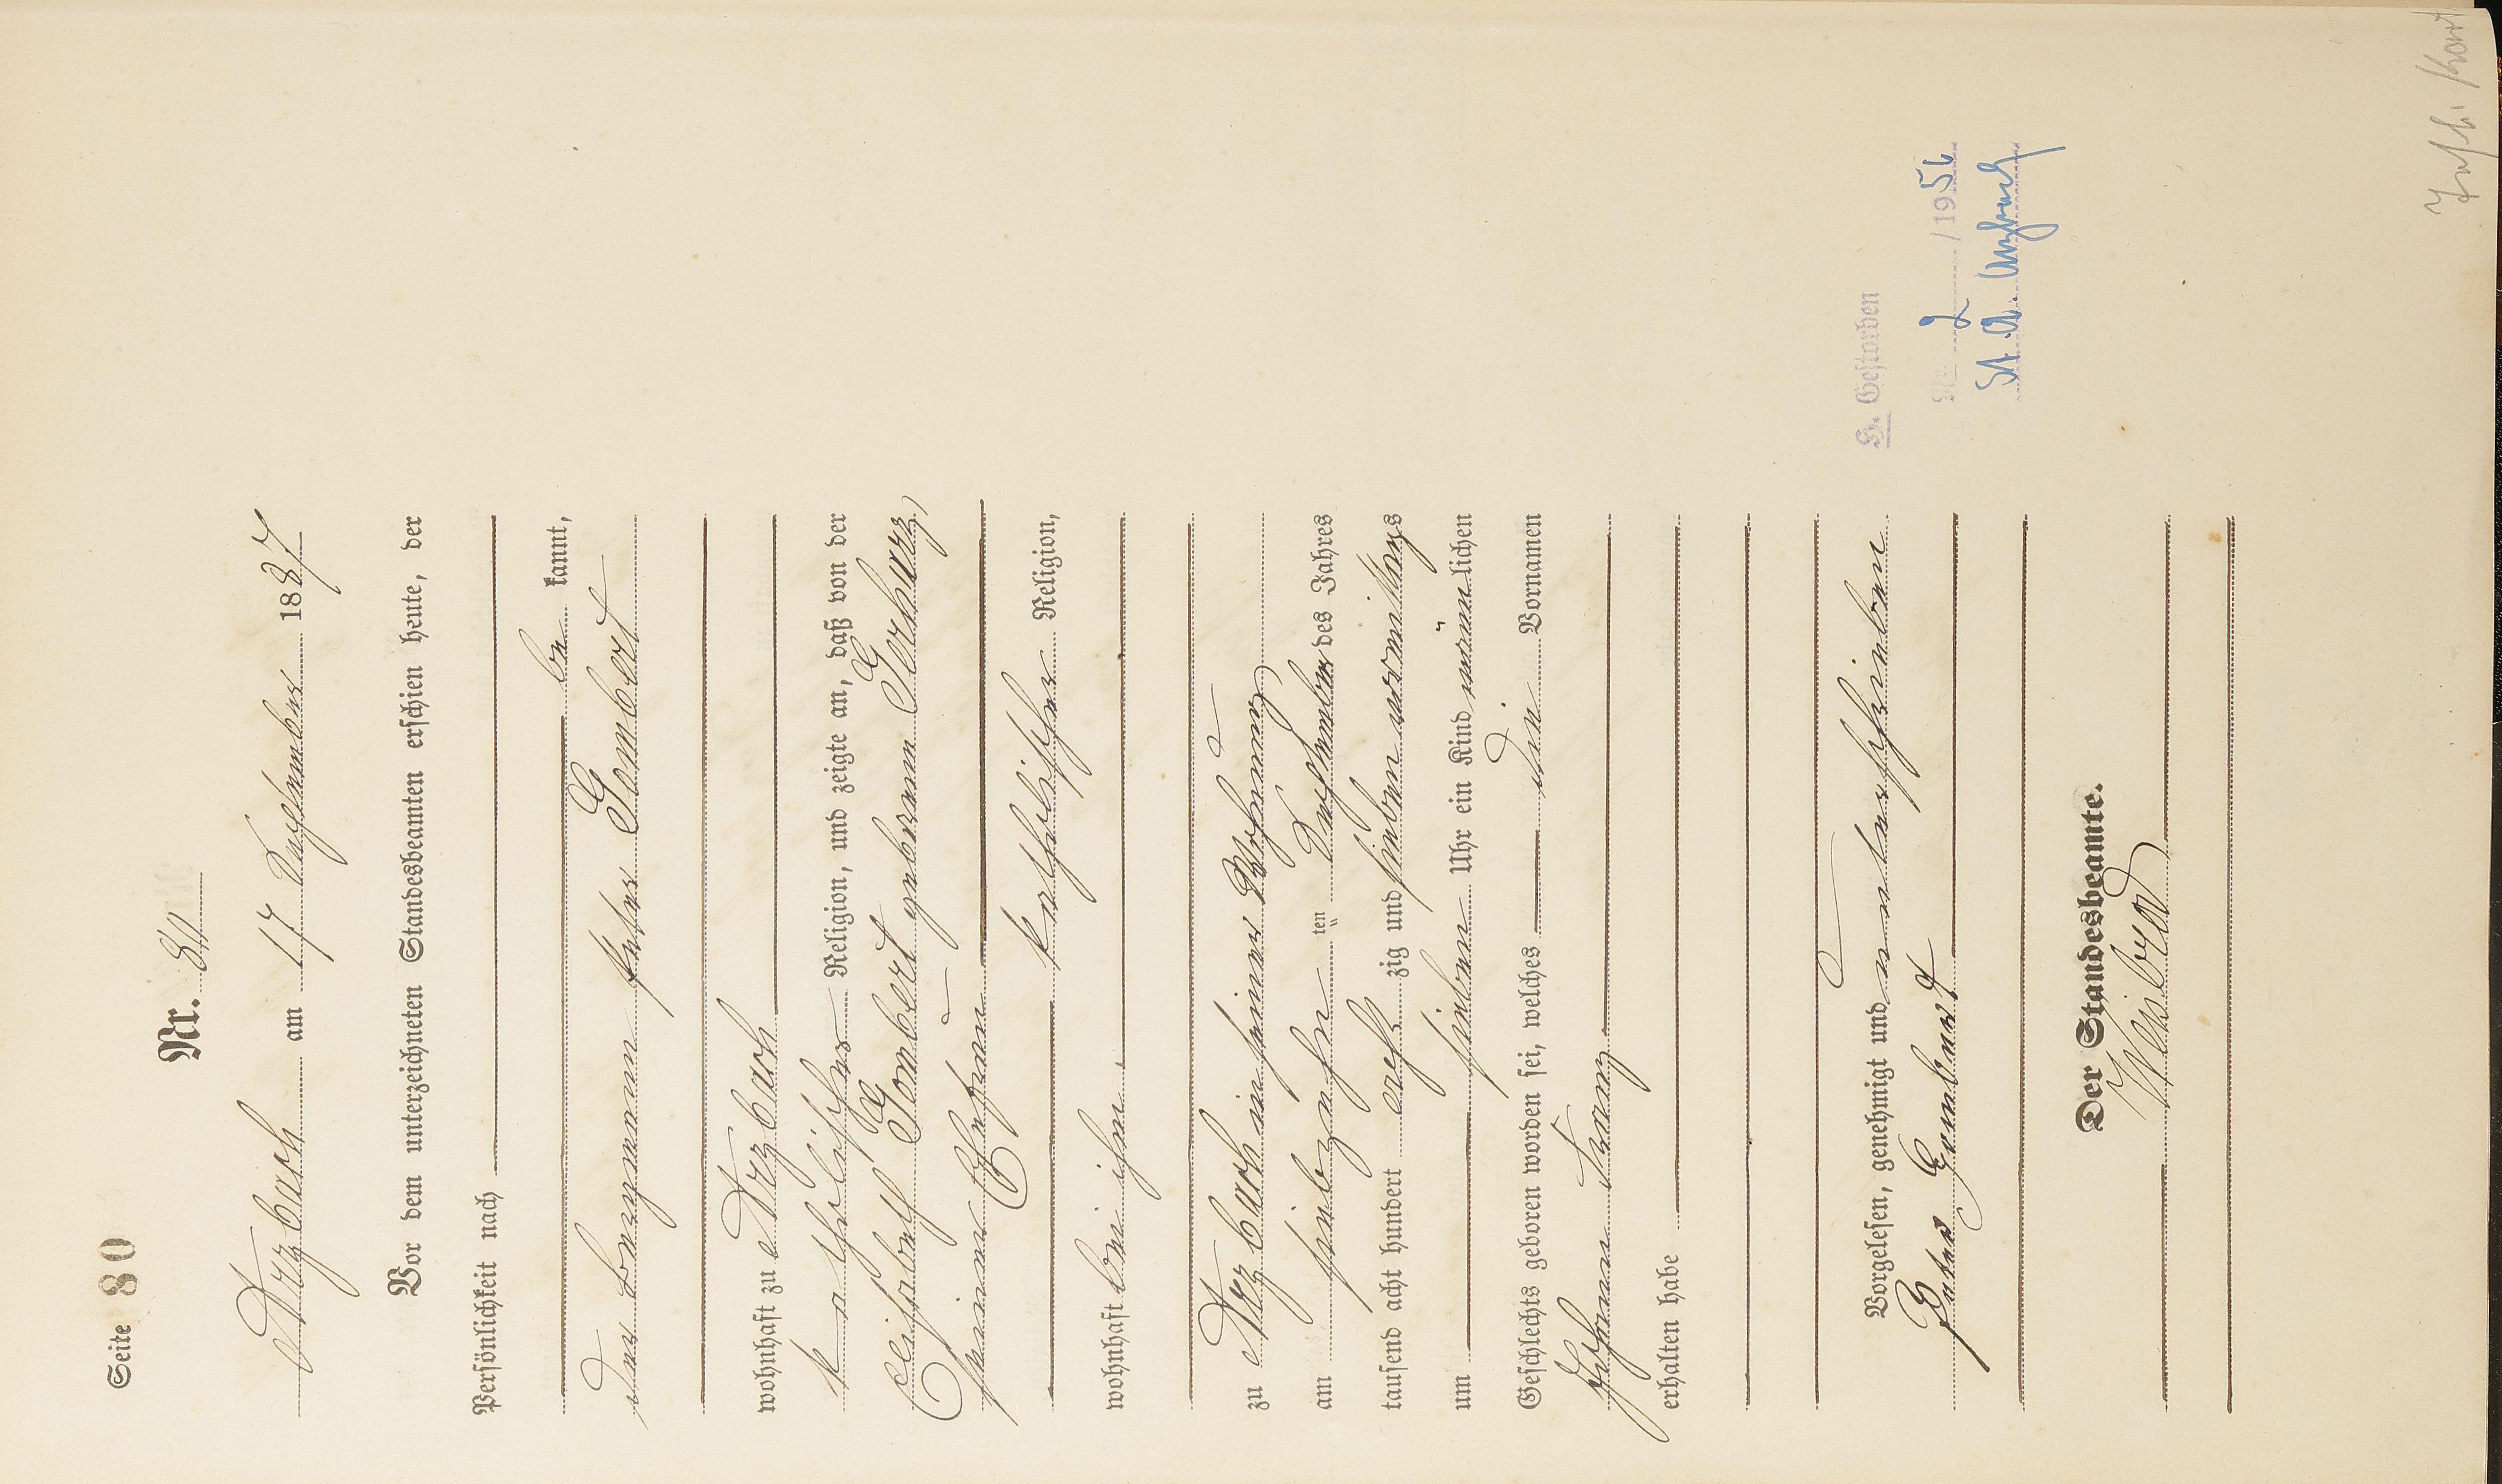 Seite 80
Nr. 80
Arzbach am 17 Dezember 1887
Vor dem unterzeichneten Standesbeamten erschien heute, der
Persönlichkeit nach
be kannt,
der Bergmann Peter Gombert
wohnhaft zu Arzbach
katholischer Religion, und zeigte an, daß von der
Elisabeth Gombert geborenen Gerharz,
seiner Ehefrau
katholischer Religion,
wohnhaft bei ihm,
zu Arzbach in seiner Wohnung
am siebzehn ten Dezember des Jahres
tausend acht hundert acht zig und sieben vormittags
um sieben Uhr ein Kind männlichen
Geschlechts geboren worden sei, welches den Vornamen
Johann Franz
erhalten habe
Vorgelesen, genehmigt und unterschrieben
Peter Gombert
Der Standesbeamte.
Weibrod
H. Gestorben
Nr. 2 /1956
St. A. Arzbach